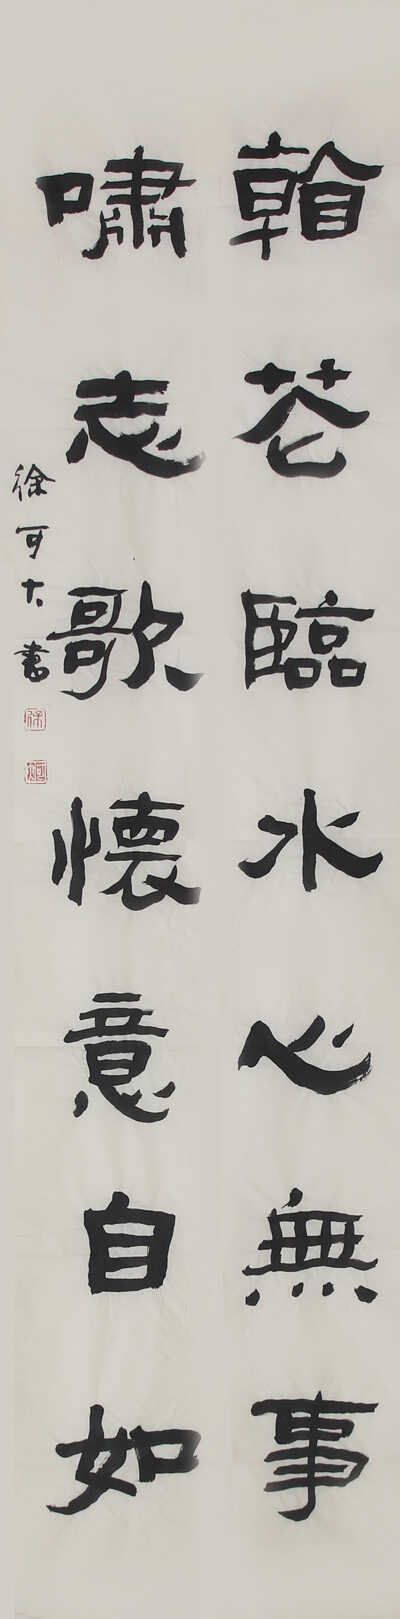 看花臨水心無事
嘯志歌懷意自如
徐可大書